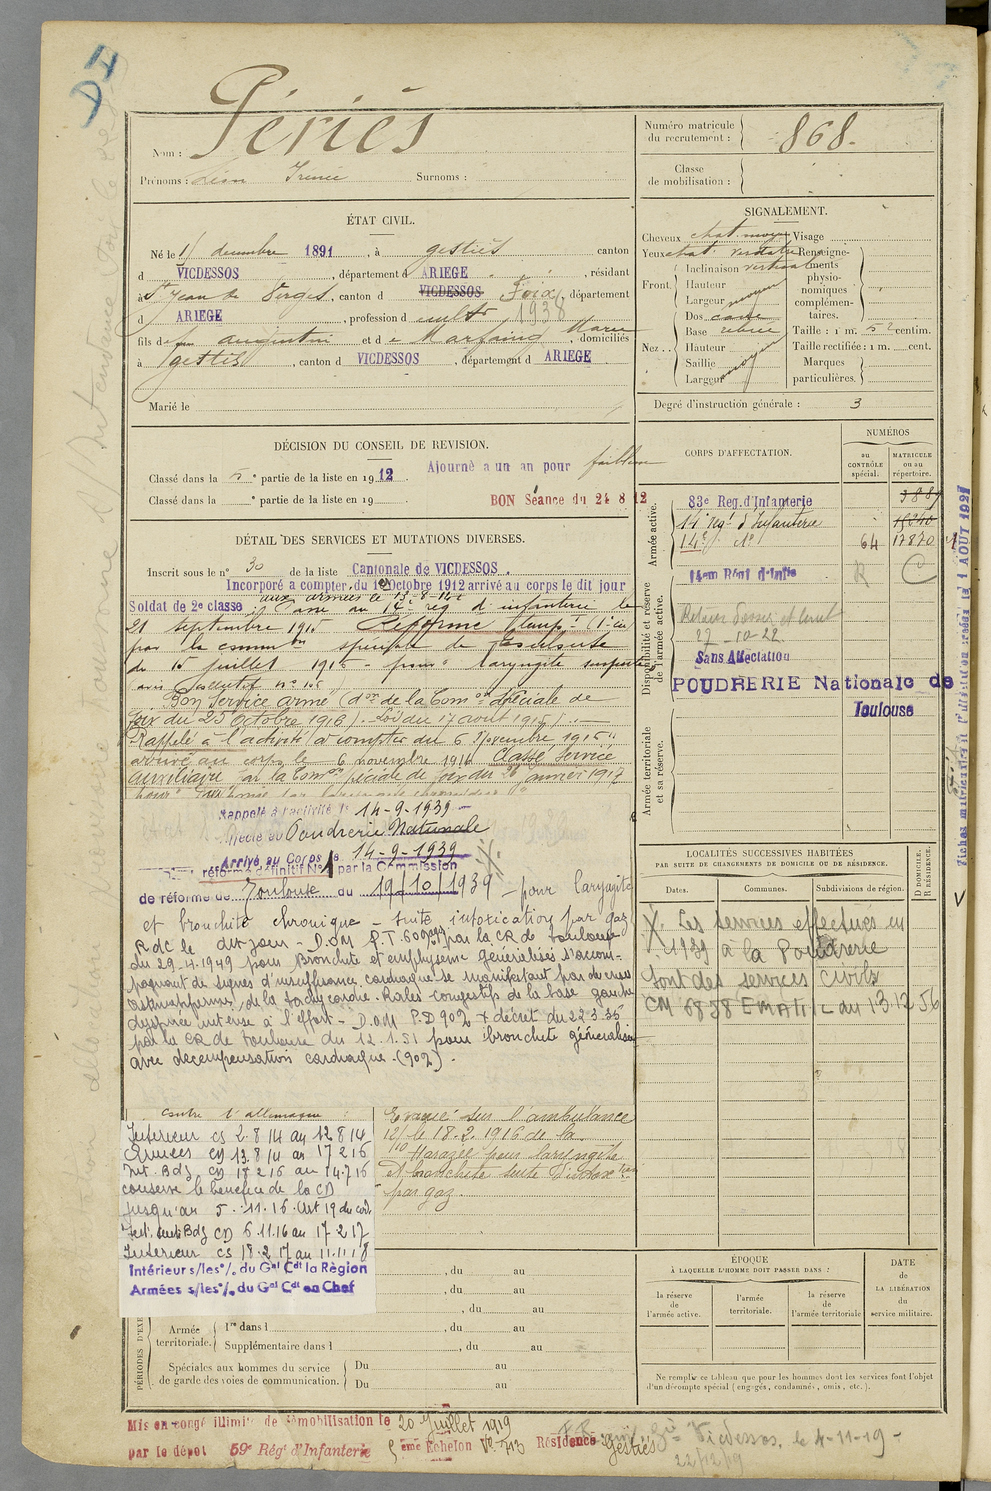 DI
Nom : Périés
Prénoms : Léon Irénée Surnoms :
Numéro matricule du recrutement : 868.
Classe de mobilisation :
ÉTAT CIVIL.
Né le 15 décembre 1891, à gestiès canton
d VICDESSOS, département d ARIEGE, résidant
à St Jean de Verges, canton d VICDESSOS Foix, département
d ARIEGE, profession d cultr 1938
fils de augustin et de Marfaing Marie, domiciliés
à gestiès, canton d VICDESSOS, département d ARIEGE
Marié le
SIGNALEMENT.
Cheveux chat. moyen Visage
Yeux chat. verdatre Renseignements physionomiques complémentaires.
Front. Inclinaison vertical
Hauteur
Largeur moyen
Nez.. Dos
Base
Hauteur
Saillie
Largeur moyen
Taille : 1 m. 52 centim.
Taille rectifiée : 1 m. cent.
Marques particulières.
Degré d'instruction générale : 3
DÉCISION DU CONSEIL DE REVISION.
Classé dans la 5e partie de la liste en 1912. Ajourné a un an pour faiblesse
Classé dans la e partie de la liste en 19 . BON Séance du 24 8 12
DÉTAIL DES SERVICES ET MUTATIONS DIVERSES.
Inscrit sous le n° 30 de la liste Cantonale de VICDESSOS.
Incorporé a compter du 1er Octobre 1912 arrivé au corps le dit jour
aux armées le 13-8-14
Soldat de 2e classe. Passé au 14e rég d'infanterie le
21 septembre 1915 Réforme temp.
par la comm on spéciale de
du 15 juillet 1916 - pour laryngite suspecte
Bon Service armé (don de la Comon Spéciale de
Foix du 23 Octobre 1916) - Loi du 17 aout 1915).
Rappelé à l'activité à compter du 6 Novembre 1916
arrivé au corps le 6 novembre 1916 Classé Service
Auxiliaire par la Comon spéciale de Foix du 26 janvier 1917
Rappelé à l'activité le 14-9-1939
Affecté au Poudrerie Nationale
Arrivé au Corps le 14-9-1939
réformé définitif N°1 par la Commission
de réforme de Toulouse du 19/10/1939 - pour laryngite
et bronchite chronique - suite intoxication par gaz
RdC le dit jour - D.O.M P.T. 60% par la CR de toulouse
du 29-4-1949 pour Bronchite et emphysème généralisés s'accompagnant
de signes d'insuffisance cardiaque se manifestant par de crises
asthmatiformes, de la tachycardie. Rales congestifs de la base gauche
dyspnée intense à l'effort - D.O.M P.D 90% + décret du 22.3.35
par la CR de toulouse du 12.1.51 pour bronchite généralisée
avec décompensation cardiaque. (90%).
CORPS D'AFFECTATION.
NUMÉROS
au CONTRÔLE spécial.
MATRICULE ou au répertoire.
Armée active.
83e Reg. d'Infanterie 3889
14e regt d'Infanterie 15240
14e do 64 17870
Disponibilité et réserve de l'armée active.
14em Régt d'Infie R C
27-10-22
Sans Affectation
POUDRERIE Nationale de Toulouse
Armée territoriale et sa réserve.
Fiches matricules
1 AOUT 1927
LOCALITÉS SUCCESSIVES HABITÉES
PAR SUITE DE CHANGEMENTS DE DOMICILE OU DE RÉSIDENCE.
Dates. Communes. Subdivisions de région.
D DOMICILE. R RÉSIDENCE.
X. Les services effectués en
1939 à la Poudrerie
sont des services Civils
CM 6838 EMAT/1L au 13.12.56
contre l'allemagne
Interieur CS 2.8.14 au 12.8.14
Armées CD 13.8.14 au 17 2 16
Int. Bdg CD 18 2 16 au 14.7.16
conserve le bénéfice de la CD
jusqu'au 5.11.16. Art 19 du code
Int. Bdg CD 6.11.16 au 17 2 17
Interieur CS 18.2.17 au 11.11.18
Intérieur s/les °/. du Gal Cdt la Région
Armées s/les °/. du Gal Cdt en Chef
Evacué sur l'ambulance
12/1 le 18.2.1916 de la
Harazée pour laryngite
et bronchite suite d'intoxon
par gaz.
, du au
, du au
, du au
PÉRIODES D'EXE
Armée territoriale. 1re dans l , du au
Supplémentaire dans l , du au
Spéciales aux hommes du service de garde des voies de communication. Du au
Du au
ÉPOQUE
À LAQUELLE L'HOMME DOIT PASSER DANS :
la réserve de l'armée active.
l'armée territoriale.
la réserve de l'armée territoriale
DATE de LA LIBÉRATION du service militaire.
Ne remplir ce tableau que pour les hommes dont les services font l'objet
d'un décompte spécial (engagés, condamnés, omis, etc.).
Mis en congé illimité de démobilisation le 20 Juillet 1919
par le dépot 59e Rég d'Infanterie 5eme Echelon No 713 Résidence Gestiès
Vicdessos, le 4-11-19
22/12/19